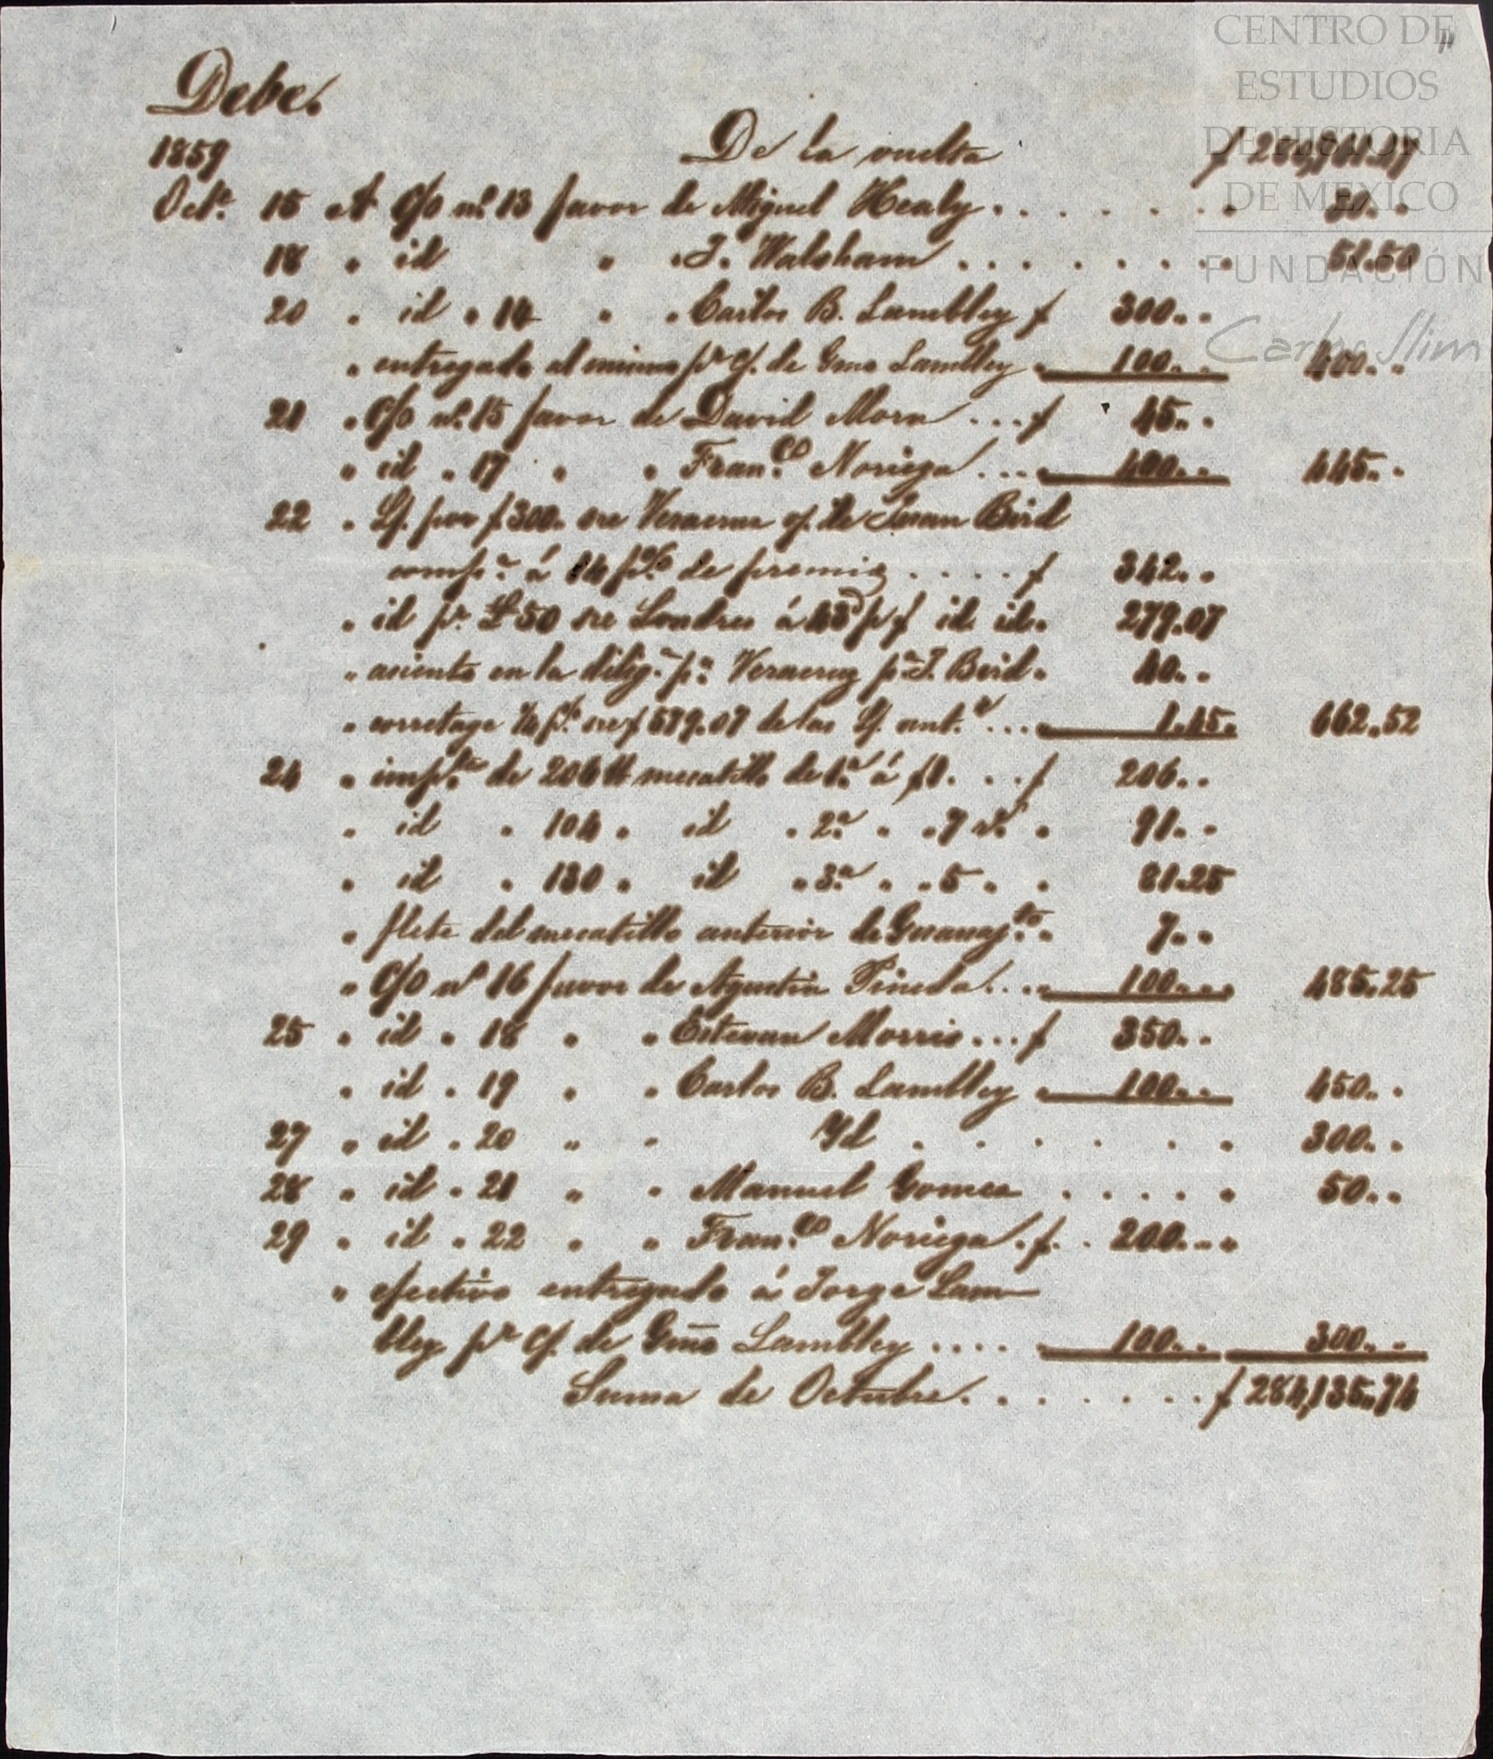 CENTRO DE
ESTUDIOS
DE HISTORIA
DE MEXICO
FUNDACIÓN
Carlos Slim
Debe.
1859 De la vuelta $
Octe. 15 A C/O nº 13 favor de Miguel Healy . . . . . . .
18 " id " " J. Walsham . . . . . . . . 51.50
20 " id " 14 " " Carlos B. Lambley $ 300 " "
" entregado al mismo pr c/. de Gmo Lambley " 100 " " 400 " "
21 " C/O nº 15 favor de David Mora . . . $ 45 " "
" id " 17 " " Fran.co Noriega . . . " 400 " " 445 " "
22 " L/. por $ 300 " sre Veracruz c/. de Juan Bird
comp.a á 14 p% de premio . . . . $ 342 " "
" id pr. £ 50 sre Londres á 43 p $ id id " 279.07
" asiento en la dilig.a p.a Veracruz p.a J. Bird " 40 " "
" corretage ¼ p% sre $ 579.07 de las L/. ant.s . . . " 1.45 " 662.52
24 " imp.te de 206 lb mecatillo de 1.a á $ 1 . . . $ 206 " "
" id " 104 " id " 2.a " " 7 rs. " 91 " "
" id " 130 " id " 3.a " " 5 " " 81.25
" flete del mecatillo anterior de Guanaj.to " 7 " "
" C/O nº 16 favor de Agustin Pineda . . . " 100 " " 485.25
25 " id " 18 " " Estevan Morris . . . $ 350 " "
" id " 19 " " Carlos B. Lambley " 100 " " 450 " "
27 " id " 20 " " Yd . . . . . . . 300 " "
28 " id " 21 " " Manuel Gomez . . . . . 50 " "
29 " id " 22 " " Fran.co Noriega . $ . 200 " "
" efectivo entregado á Jorge Lam-
bley pr c/. de Gmo Lambley . . . . 100 " " 300 " "
Suma de Octubre . . . . . . . $ 284,135.74